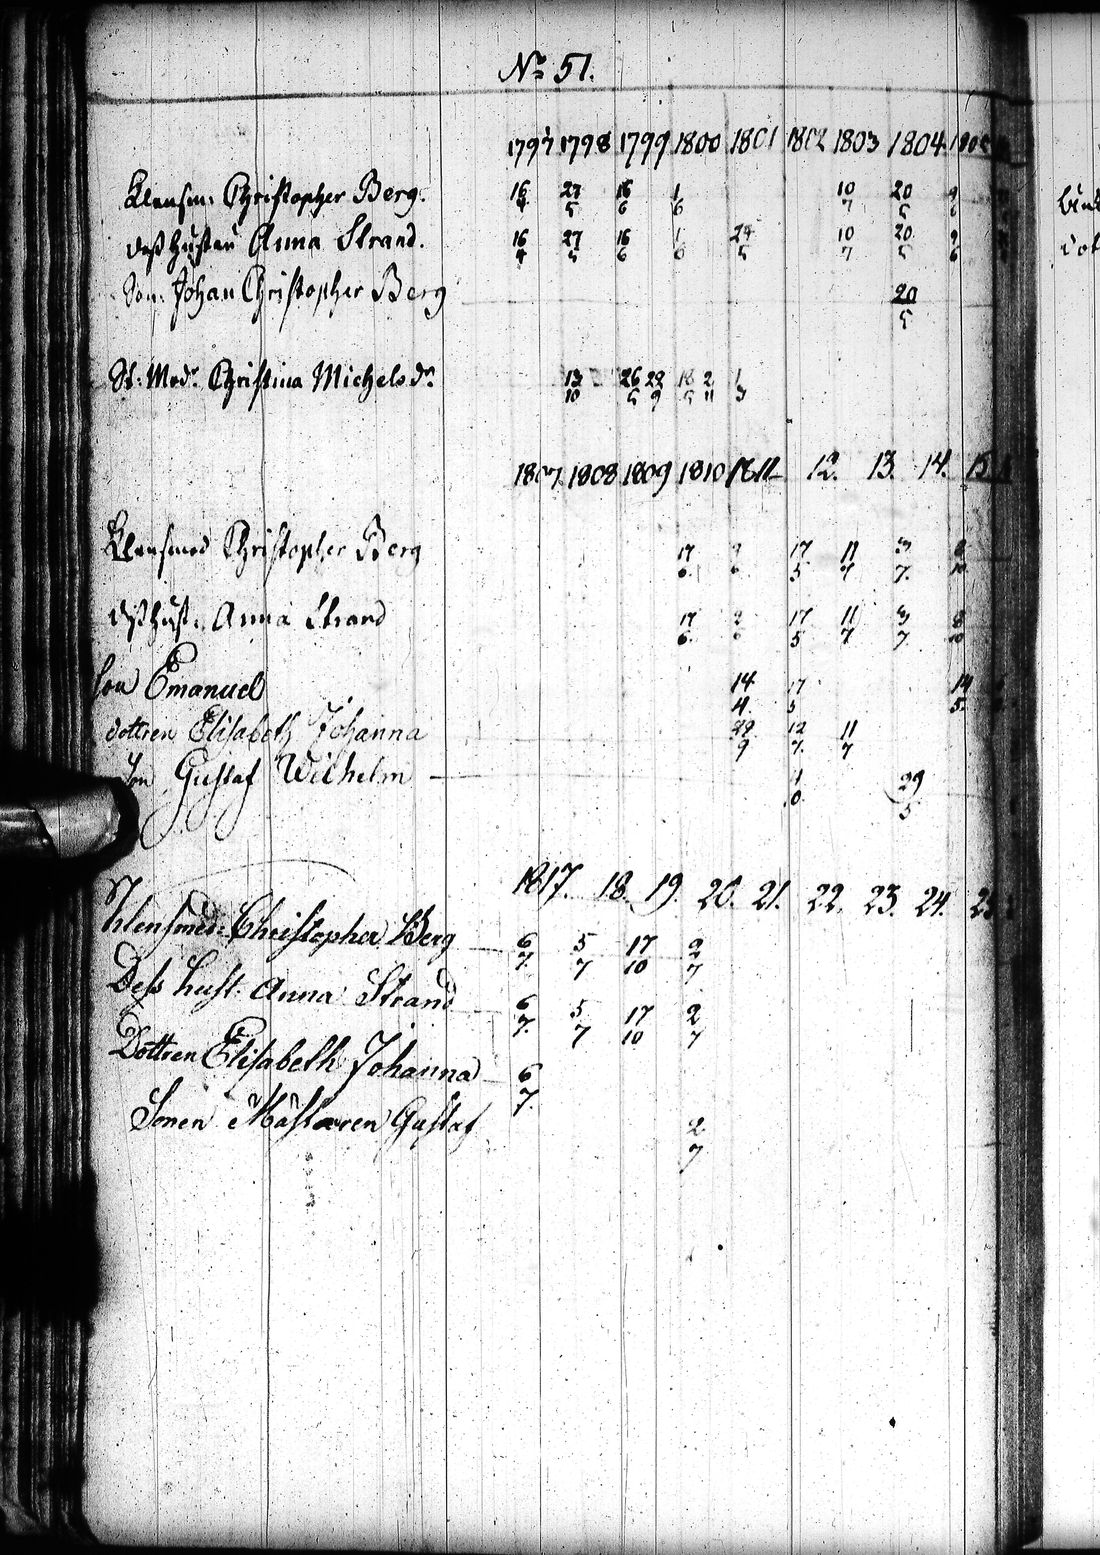 No 51.
1797 1798 1799 1800 1801 1802 1803 1804 1805
Klensm: Christopher Berg. 16/4 27/5 16/6 1/6 10/7 20/5 9/6
Dess Hustru Anna Strand. 16/4 27/5 16/6 1/6 24/5 10/7 20/5 9/6
Son: Johan Christopher Berg 20/5
St: Modr Christina Michelsdr 13/10 26/5 29/9 18/5 2/11 1/3
1807. 1808 1809 1810 1811 12. 13. 14. 15.
Klensmed Christopher Berg 17/6. 2/6 17/5 11/7 3/7. 8/10
Dess Hust: Anna Strand 17/6. 2/6 17/5 11/7 3/7. 8/10
Son Emanuel 14/4. 17/5 14/5.
dottren Elisabeth Johanna 29/9 12/7. 11/7
Son Gustaf Wilhelm 29/5
1817. 18. 19. 20. 21. 22. 23. 24. 25
Klensmed: Christopher Berg 6/7. 5/7 17/10 2/7
Dess hust: Anna Strand 6/7. 5/7 17/10. 2/7
Dottren Elisabeth Johanna 6/7.
Sonen Mästaren Gustaf 2/7